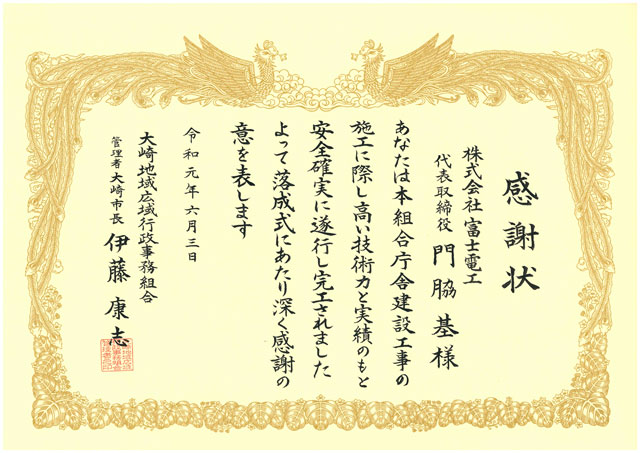 感謝状
株式会社 富士電工
代表取締役 門脇 基 様
あなたは本組合庁舎建設工事の
施工に際し高い技術力と実績のもと
安全確実に遂行し完工されました
よって落成式にあたり深く感謝の
意を表します
令和元年六月三日
大崎地域広域行政事務組合
管理者 大崎市長 伊藤 康志